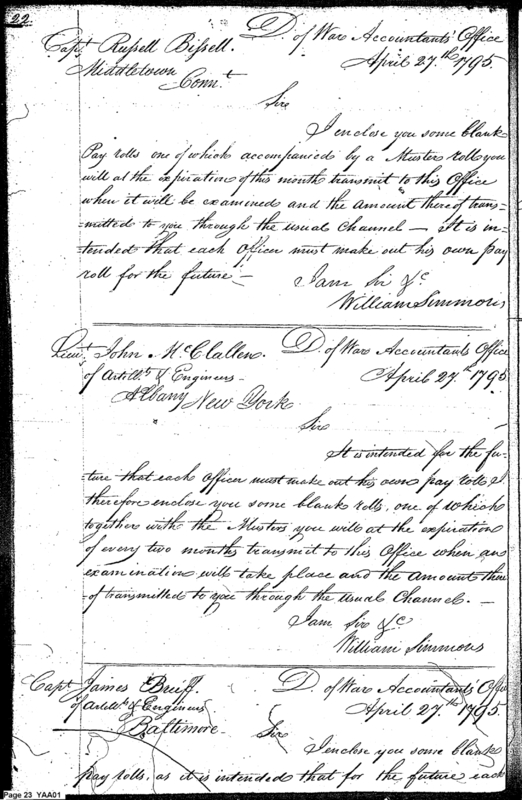 22
D. of War Accountants' Office
Capt. Russell Bissell. April 27.th 1795.
Middletown
Connt.
Sir
I enclose you some blank
Pay rolls one of which accompanied by a Muster roll you
will at the expiration of this month transmit to this Office
when it will be examined and the amount thereof trans=
=mitted to you through the usual Channel — It is in=
=tended that each Officer must make out his own pay
roll for the future —
I am Sir &c
William Simmons
Lieut. John McClallen. D. of War Accountants Office
of Artilly. & Engineers — April 27.th 1795
Albany New York
Sir
It is intended for the fu=
=ture that each Officer must make out his own pay rolls I
therefore enclose you some blank rolls, one of which
together with the Musters you will at the expiration
of every two months transmit to this Office when an
examination will take place and the amount there
=of transmitted to you through the usual Channel. —
I am Sir &c
William Simmons
Capt James Bruff. D. of War Accountants' Office
of Artilly. & Engineers April 27.th 1795.
Baltimore — Sir
I enclose you some blank
pay rolls, as it is intended that for the future each
Page 23 YAA01